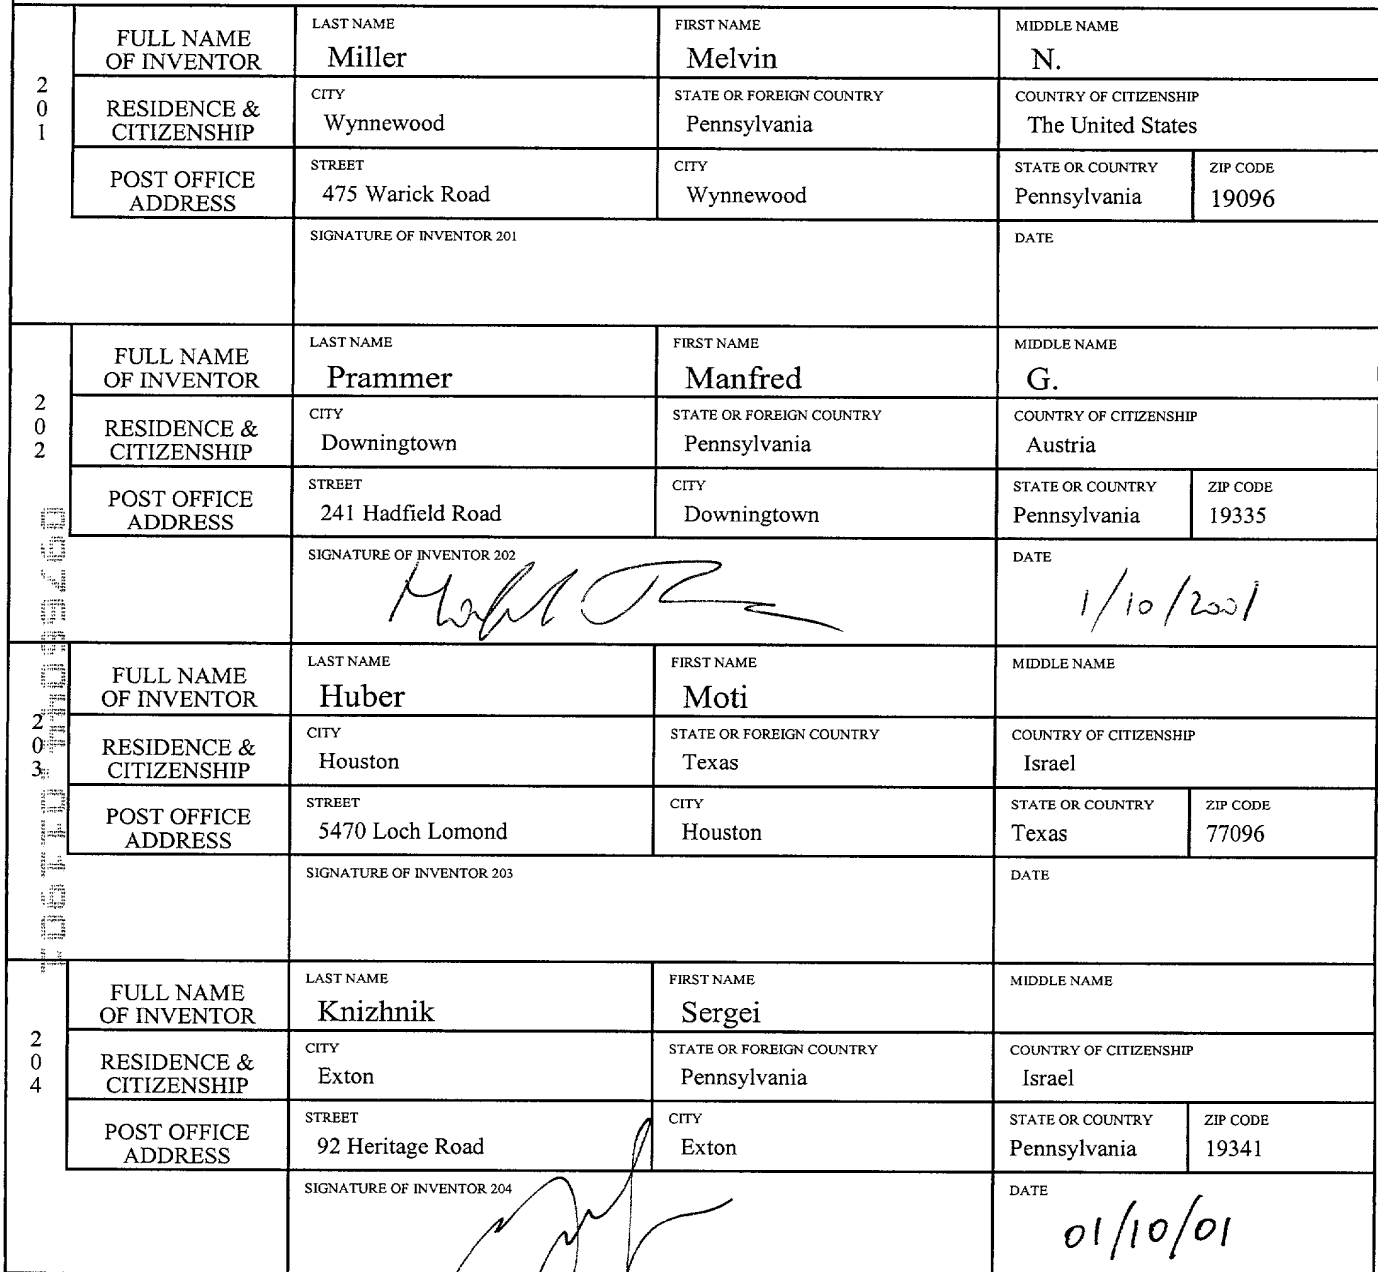 201
FULL NAME OF INVENTOR
LAST NAME
Miller
FIRST NAME
Melvin
MIDDLE NAME
N.
RESIDENCE & CITIZENSHIP
CITY
Wynnewood
STATE OR FOREIGN COUNTRY
Pennsylvania
COUNTRY OF CITIZENSHIP
The United States
POST OFFICE ADDRESS
STREET
475 Warick Road
CITY
Wynnewood
STATE OR COUNTRY
Pennsylvania
ZIP CODE
19096
SIGNATURE OF INVENTOR 201
DATE
202
FULL NAME OF INVENTOR
LAST NAME
Prammer
FIRST NAME
Manfred
MIDDLE NAME
G.
RESIDENCE & CITIZENSHIP
CITY
Downingtown
STATE OR FOREIGN COUNTRY
Pennsylvania
COUNTRY OF CITIZENSHIP
Austria
POST OFFICE ADDRESS
STREET
241 Hadfield Road
CITY
Downingtown
STATE OR COUNTRY
Pennsylvania
ZIP CODE
19335
SIGNATURE OF INVENTOR 202
DATE
1/10/2001
203
FULL NAME OF INVENTOR
LAST NAME
Huber
FIRST NAME
Moti
MIDDLE NAME
RESIDENCE & CITIZENSHIP
CITY
Houston
STATE OR FOREIGN COUNTRY
Texas
COUNTRY OF CITIZENSHIP
Israel
POST OFFICE ADDRESS
STREET
5470 Loch Lomond
CITY
Houston
STATE OR COUNTRY
Texas
ZIP CODE
77096
SIGNATURE OF INVENTOR 203
DATE
204
FULL NAME OF INVENTOR
LAST NAME
Knizhnik
FIRST NAME
Sergei
MIDDLE NAME
RESIDENCE & CITIZENSHIP
CITY
Exton
STATE OR FOREIGN COUNTRY
Pennsylvania
COUNTRY OF CITIZENSHIP
Israel
POST OFFICE ADDRESS
STREET
92 Heritage Road
CITY
Exton
STATE OR COUNTRY
Pennsylvania
ZIP CODE
19341
SIGNATURE OF INVENTOR 204
DATE
01/10/01